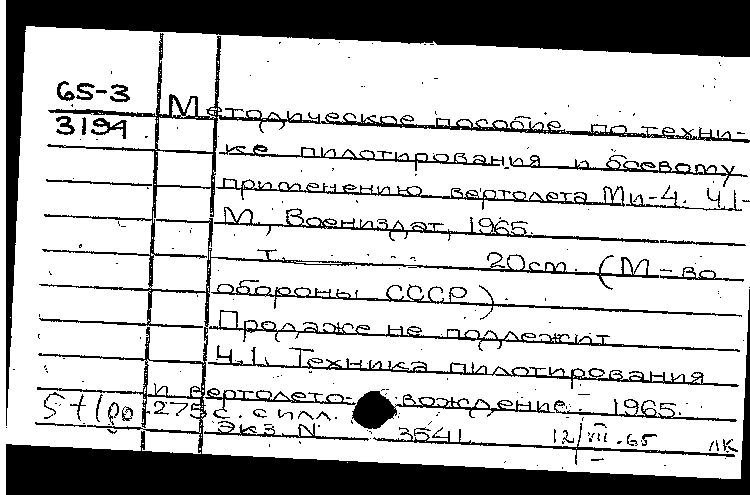 65-3
3194
Методическое пособие по техни-
ке пилотирования и боевому
применению вертолета Ми-4. Ч.1-
М., Воениздат, 1965.
т. 20см. (М-во
обороны СССР).
Продаже не подлежит
Ч.1. Техника пилотирования
и вертолето- вождение. 1965.
275 с. с илл.
Экз. N 3541 12/VII.65 ЛК